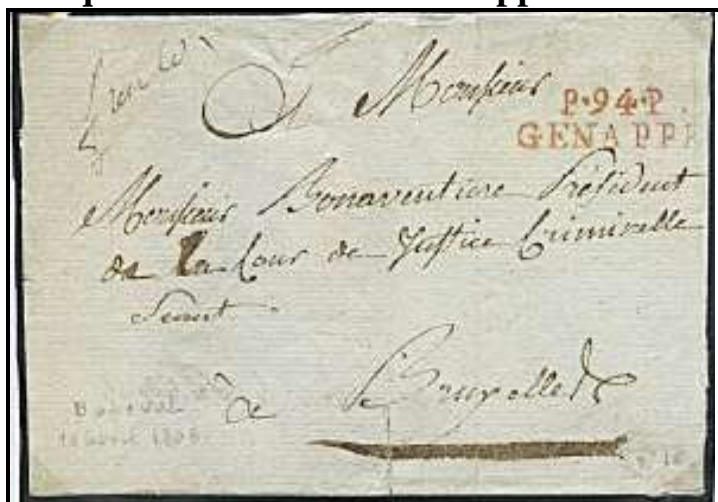 Monsieur
P·94·P
GENAPPE
Monsieur Bonaventure Président
de La Cour de Justice Criminelle
Seant
a Bruxelles
avril